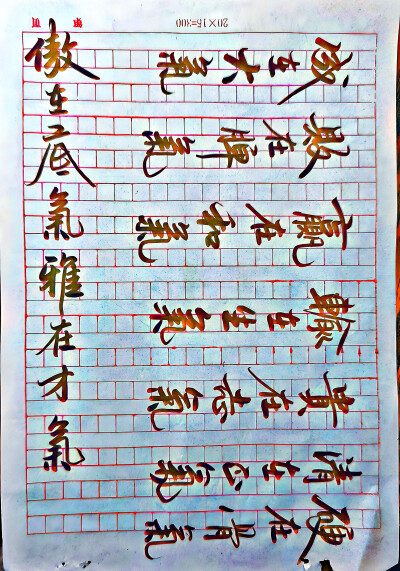 成在大氣
敗在脾氣
贏在和氣
輸在生氣
貴在志氣
清在正氣
硬在骨氣
傲在底氣雅在才氣
20×15=300